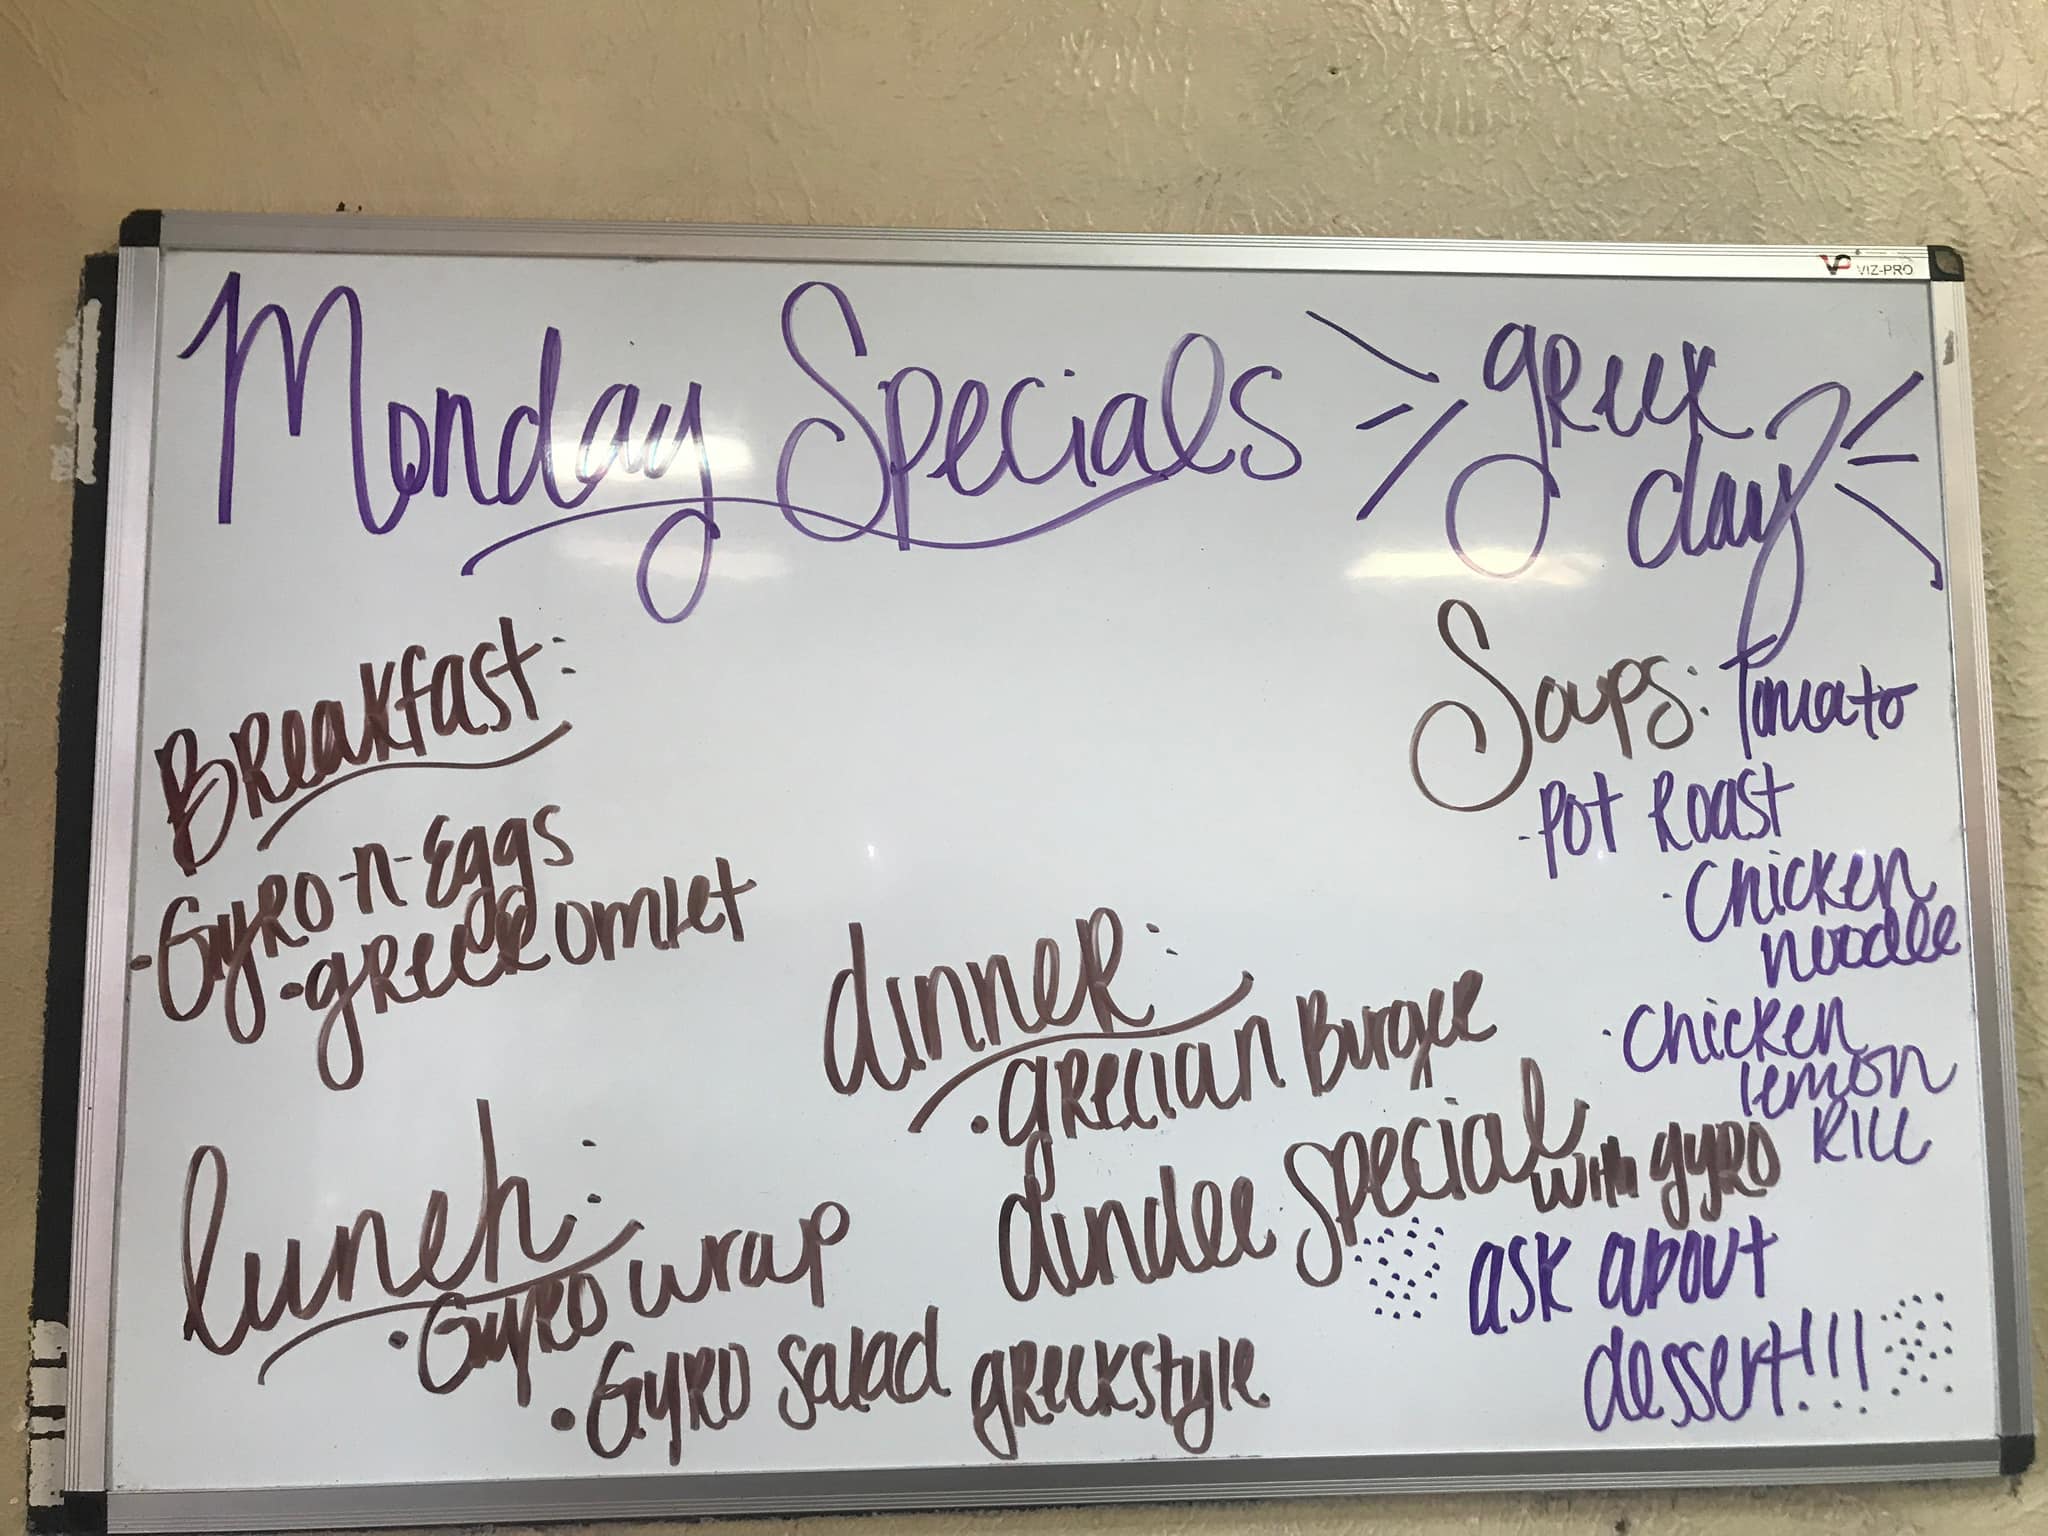 VP VIZ-PRO
Monday Specials
greek
day
Breakfast:
·Gyro-n-Eggs
·greek omlet
lunch:
·Gyro wrap
·Gyro salad greekstyle
dinner:
·grecian Burger
dundee special
with gyro
Soups: Tomato
·Pot Roast
·chicken
noodle
·chicken
lemon
Rice
ask about
dessert!!!